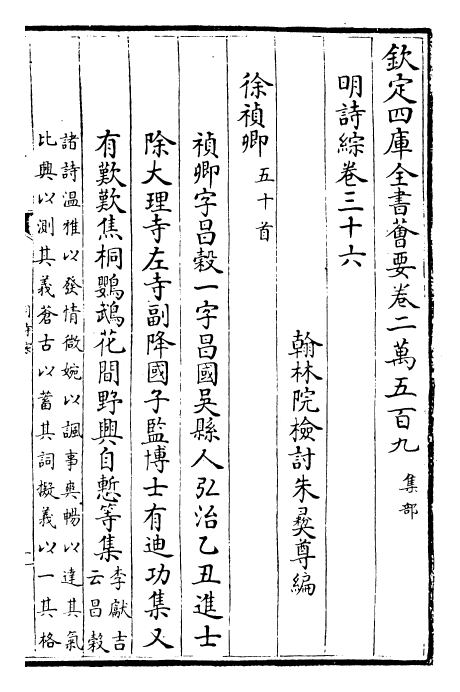 欽定四庫全書薈要卷二萬五百九 集部
明詩綜卷三十六
翰林院檢討朱彞尊編
徐禎卿 五十首
禎卿字昌穀一字昌國吳縣人弘治乙丑進士
除大理寺左寺副降國子監博士有迪功集又
有歎歎焦桐鸚鵡花間野興自慙等集 李獻吉
云昌穀
諸詩温雅以發情微婉以諷事爽暢以達其氣
比興以測其義蒼古以蓄其詞擬義以一其格